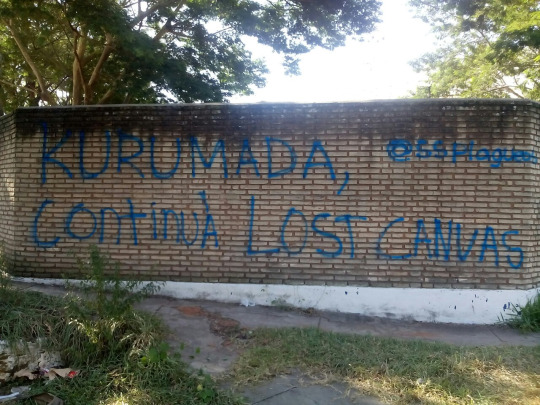 KURUMADA, @SSPlaguee
Continuà LOST CANVAS